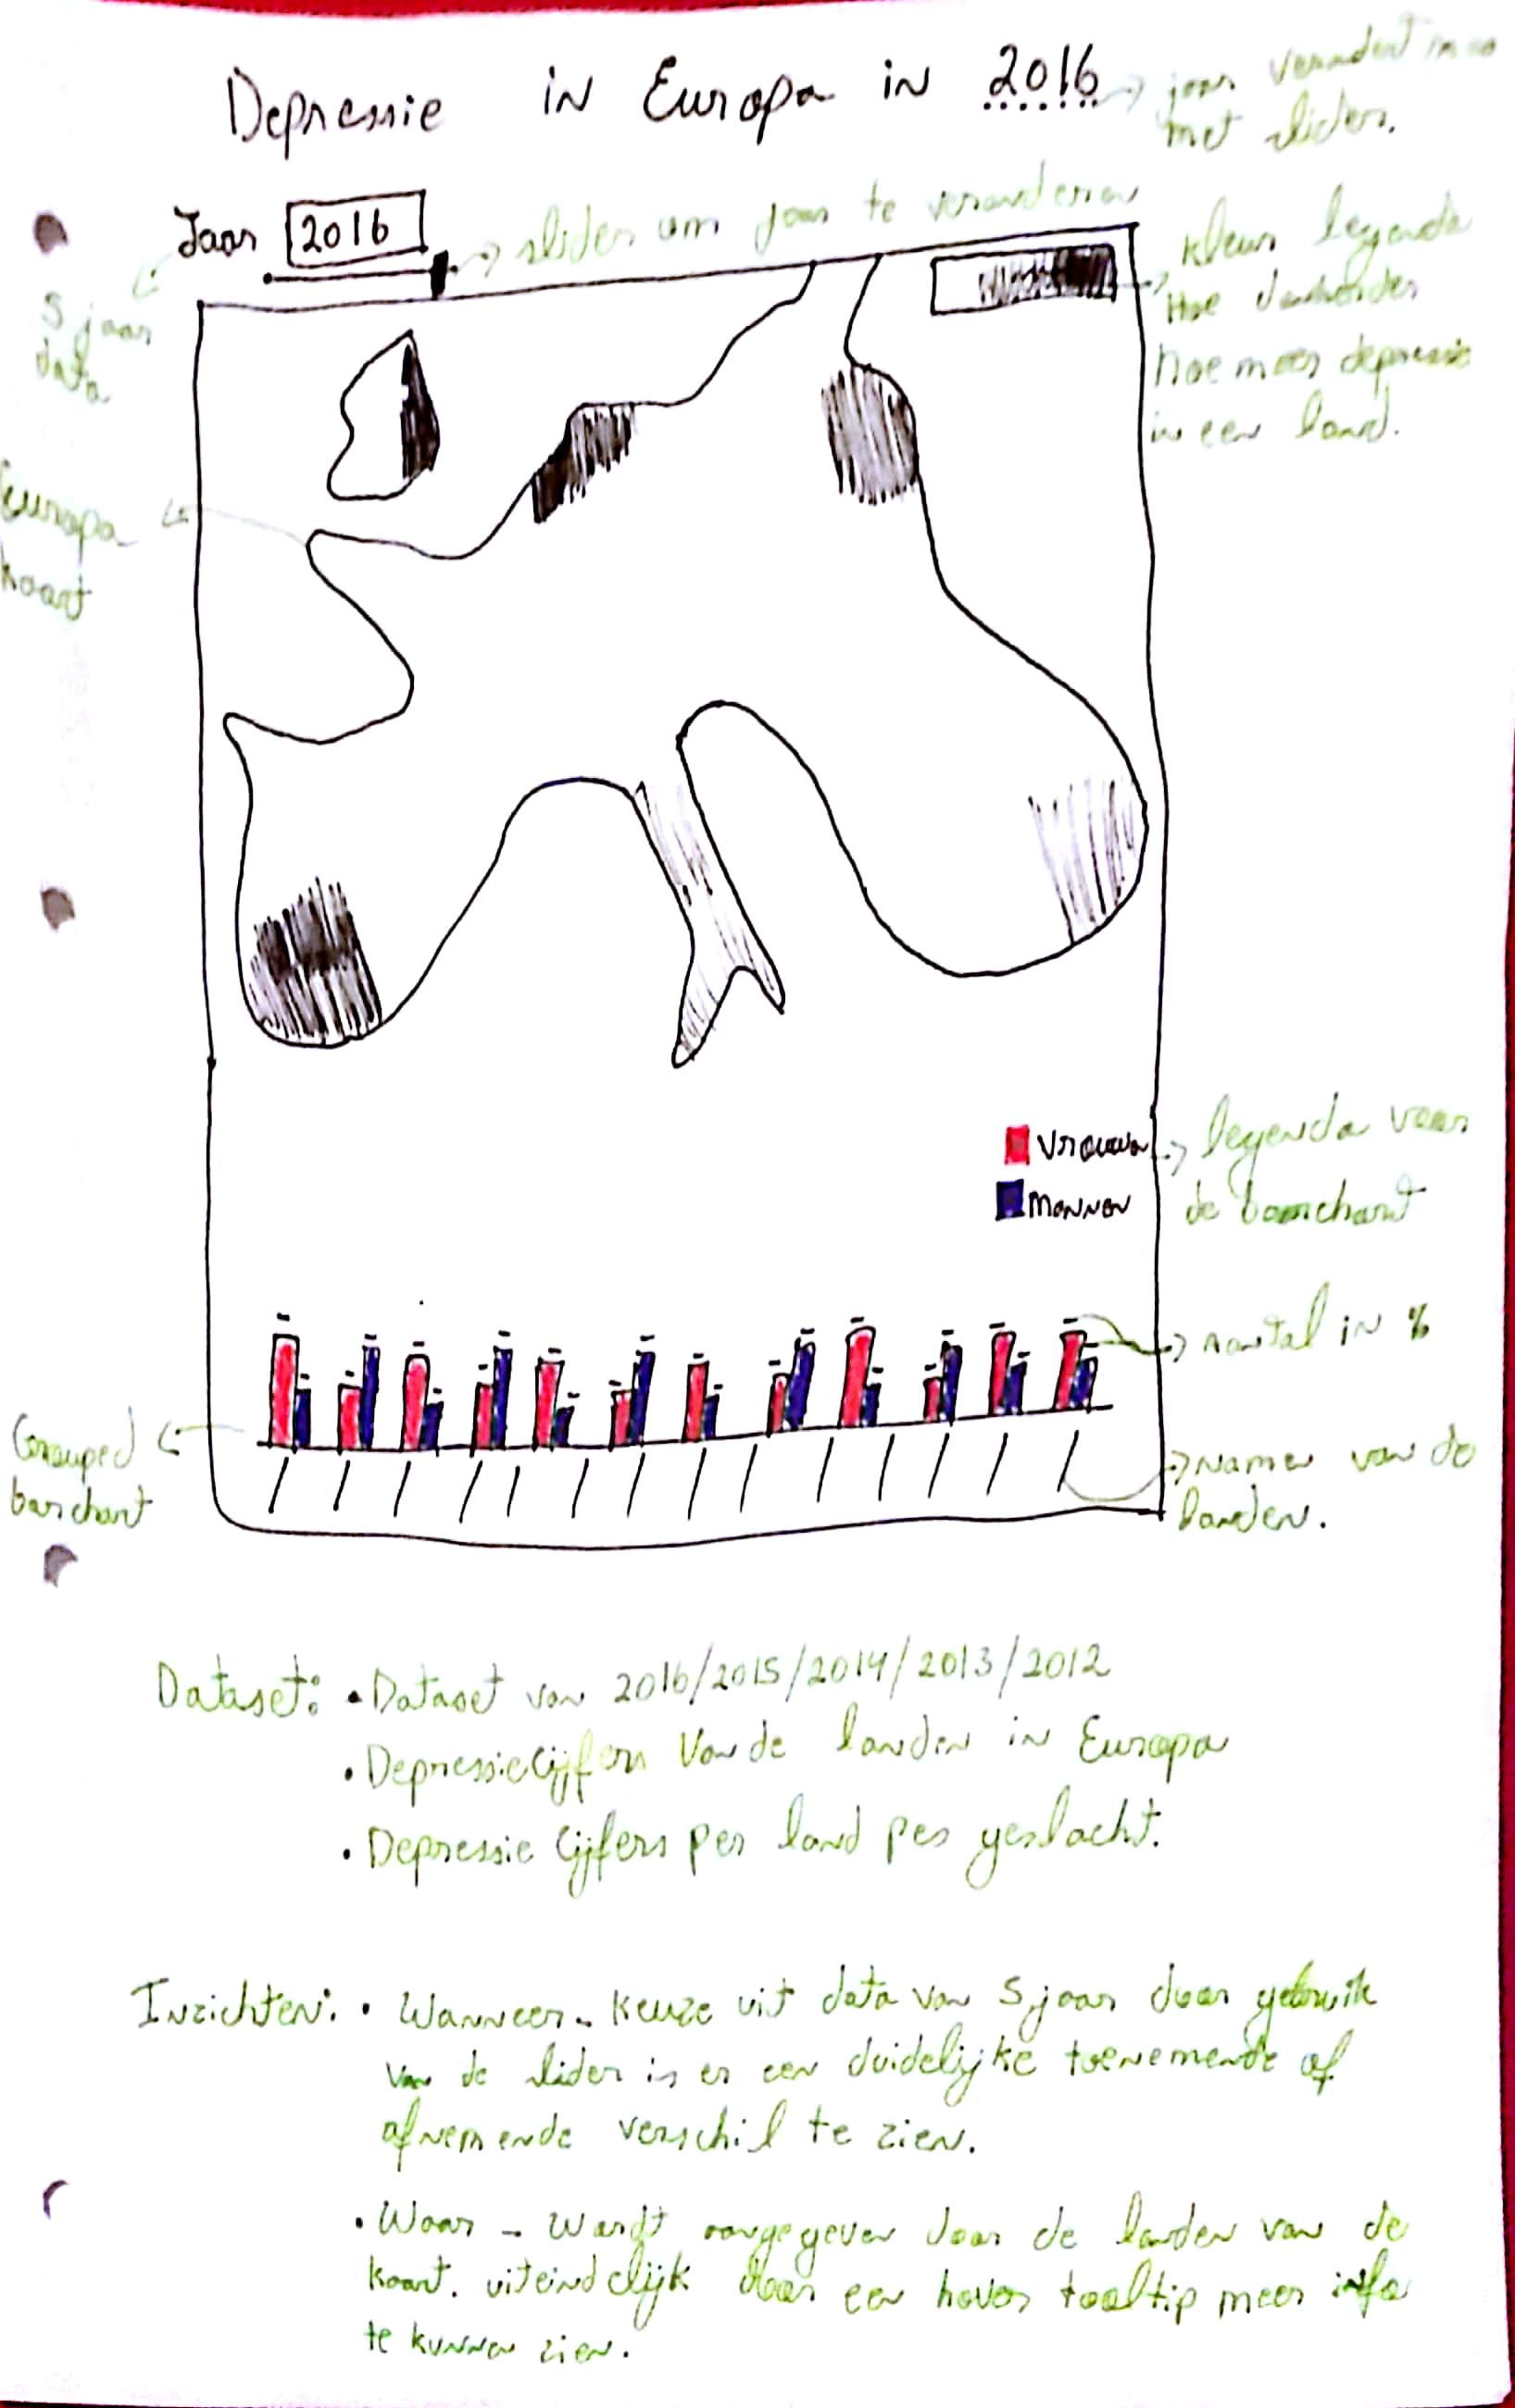 Depressie in Europa in 2016
jaar verandert mee
met slider.
Jaar 2016
slider om jaar te veranderen
5 jaar
data
kleur legenda
Hoe donkerder
hoe meer depressie
in een land.
Europa
kaart
Vrouwen
Mannen
legenda voor
de barchart
aantal in %
Grouped
barchart
namen van de
landen.
Dataset: • Dataset van 2016/2015/2014/2013/2012
• Depressiecijfers Van de landen in Europa
• Depressie Cijfers per land per geslacht.
Inzichten: • Wanneer - Keuze uit data van 5 jaar door gebruik
van de slider is er een duidelijke toenemende of
afnemende verschil te zien.
• Waar - Wordt aangegeven door de landen van de
kaart. uiteindelijk door een hover tooltip meer info
te kunnen zien.